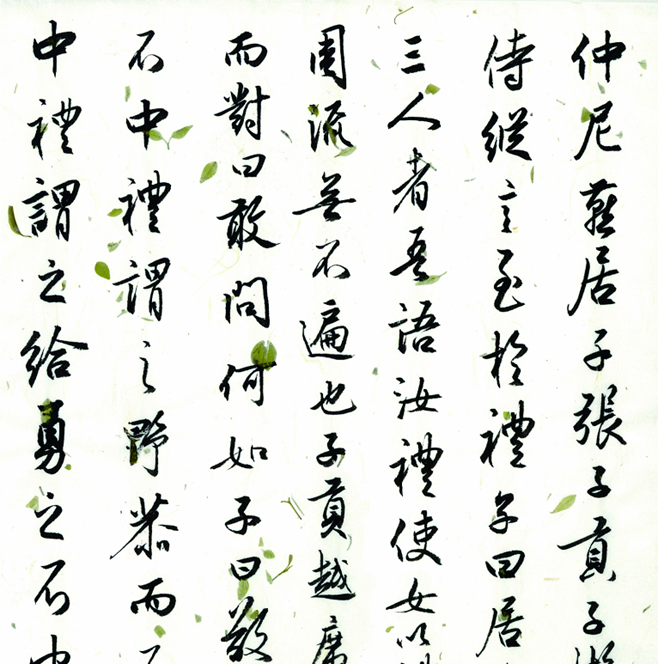 仲尼燕居子張子貢子游
侍縱言至於禮子曰居
三人者吾語汝禮使女以禮
周流無不遍也子貢越席
而對曰敢問何如子曰敬
不中禮謂之野恭而不
中禮謂之給勇而不中